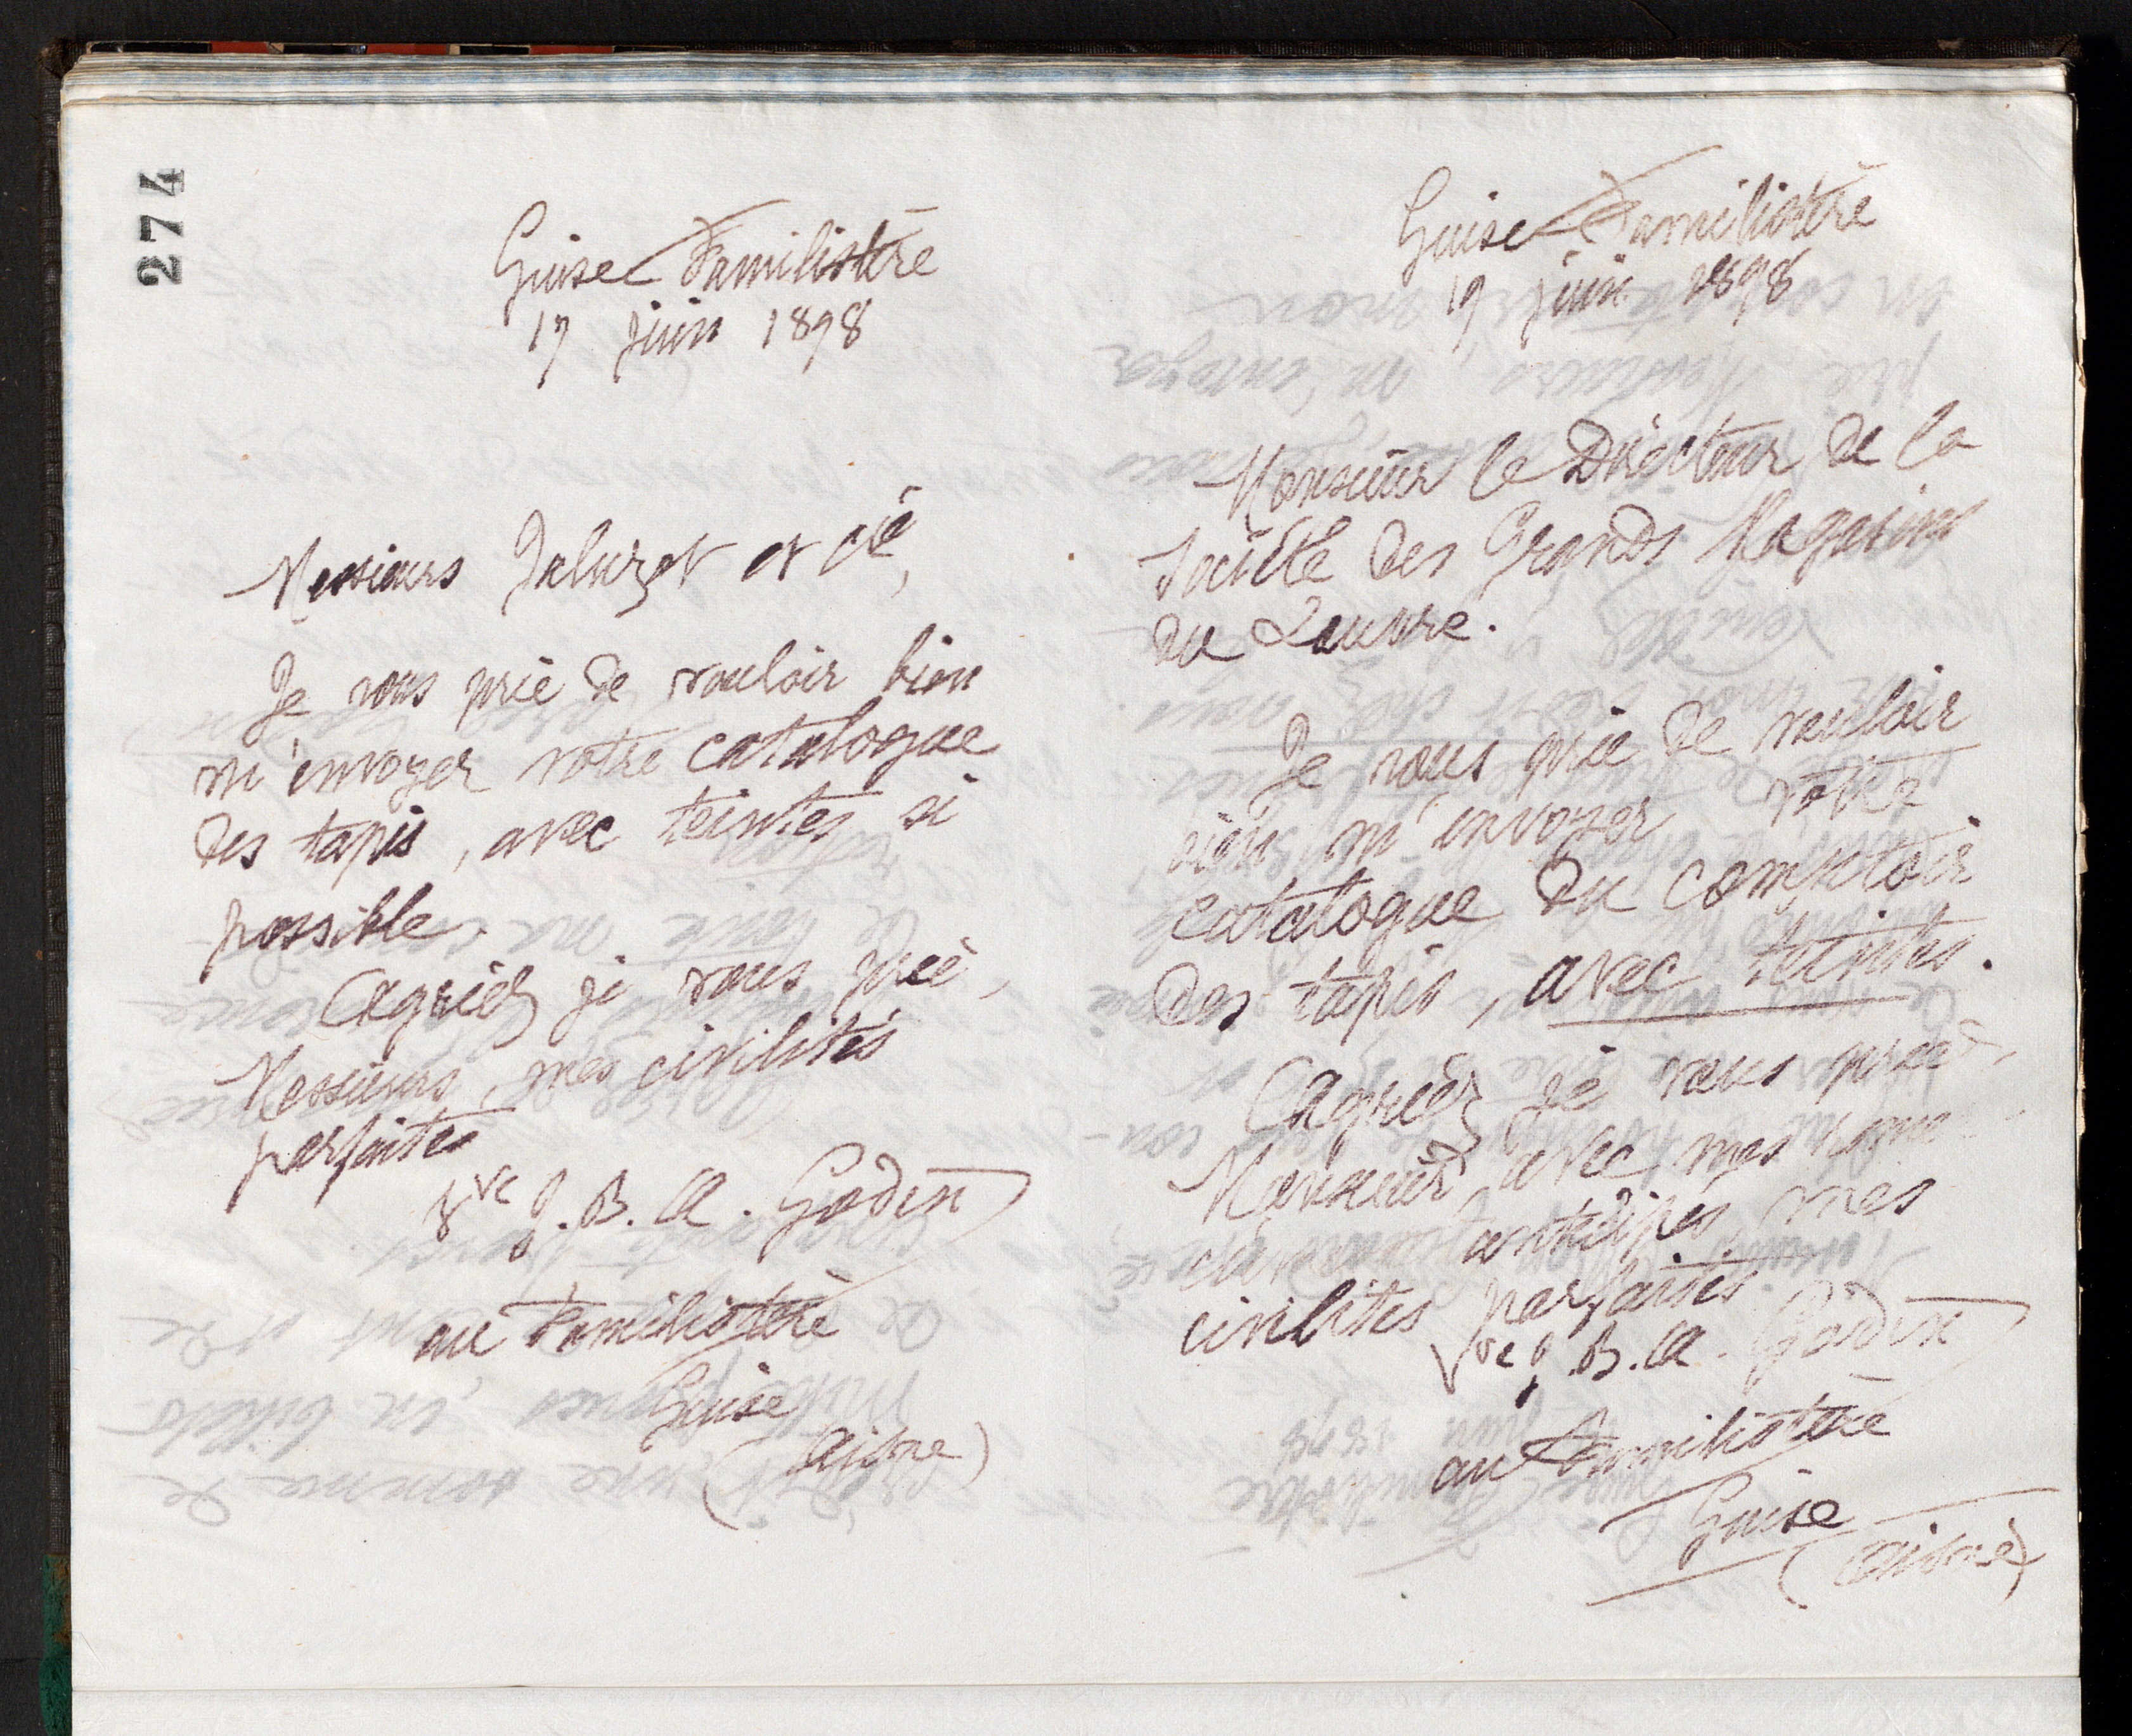 274
Guise Familistère
17 juin 1898
Messieurs Jaluzot et cie,
Je vous prie de vouloir bien
m'envoyer votre catalogue
des tapis, avec teintes si
possible.
Agréez je vous prie,
Messieurs, mes civilités
parfaites
Vve J. B. A. Godin
au Familistère
Guise
(Aisne)
Guise Familistère
19 juin 1898
Monsieur le Directeur de la
Société des Grands Magasins
du Louvre.
Je vous prie de vouloir
bien m'envoyer votre
catalogue du comptoir
des tapis, avec teintes.
Agréez je vous prie,
Monsieur avec mes remer-
ciements anticipés, mes
civilités parfaites
Vve J. B. A. Godin
au Familistère
Guise
(Aisne)